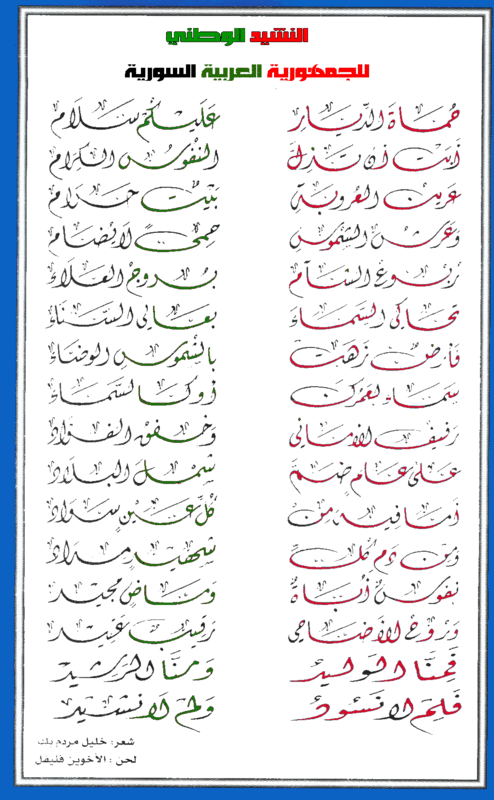 النشيد الوطني
للجمهورية العربية السورية
حماة الديار عليكم سلام
أبت أن تذل النفوس الكرام
عرين العروبة بيت حرام
وعرش الشموس حمى لا يضام
ربوع الشآم بروج العلاء
تحاكي السماء بعالي السناء
فأرض زهت بالشموس الوضاء
سماء لعمرك أو كالسماء
رفيف الأماني وخفق الفؤاد
على علم ضم شمل البلاد
أما فيه من كل عين سواد
ومن دم كل شهيد مداد
نفوس أباة وماض مجيد
وروح الأضاحي رقيب عتيد
فمنا الوليد ومنا الرشيد
فلم لا نسود ولم لا نشيد
شعر: خليل مردم بك
لحن: الأخوين فليفل